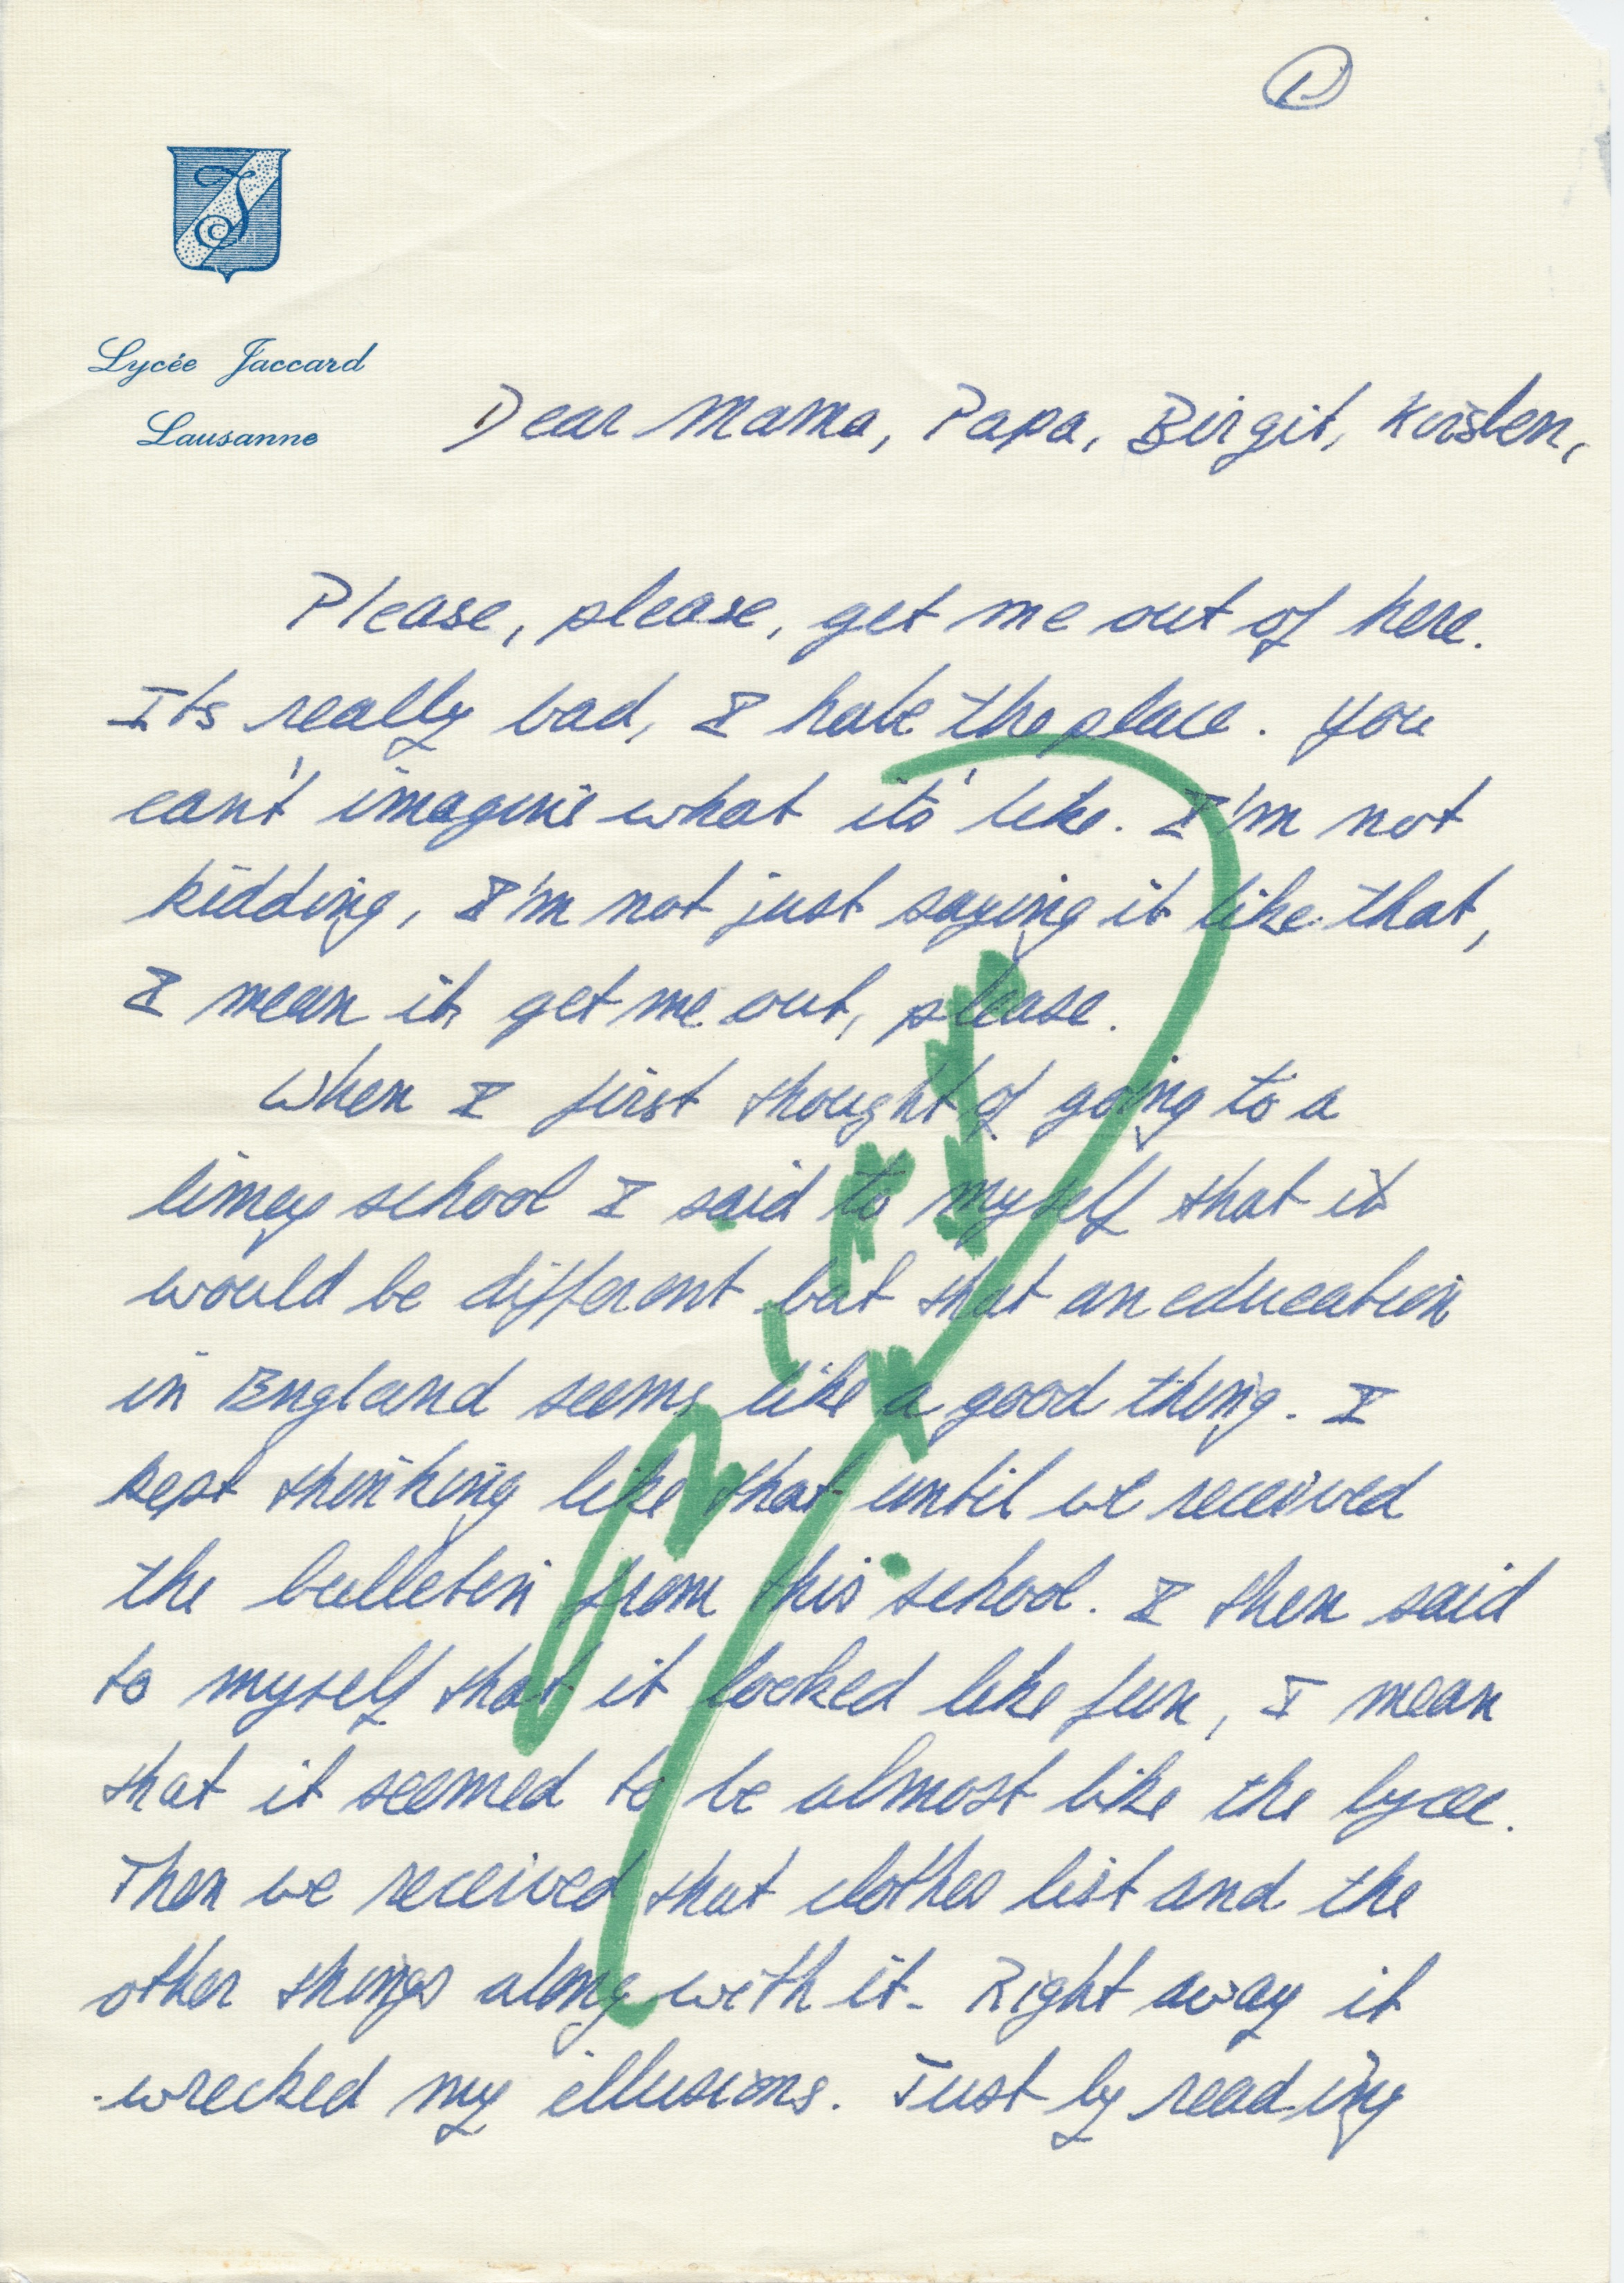 1
Lycée Jaccard
Lausanne
Dear Mama, Papa, Birgit, Kirsten,
Please, please, get me out of here.
Its really bad, I hate the place. You
can't imagine what it's like. I'm not
kidding, I'm not just saying it like that,
I mean it, get me out, please.
When I first thought of going to a
limey school I said to myself that it
would be different but that an education
in England seems like a good thing. I
kept thinking like that until we received
the bulletin from this school. I then said
to myself that it looked like fun, I mean
that it seemed to be almost like the lycee.
Then we received that clothes list and the
other things along with it. Right away it
wrecked my illusions. Just by reading